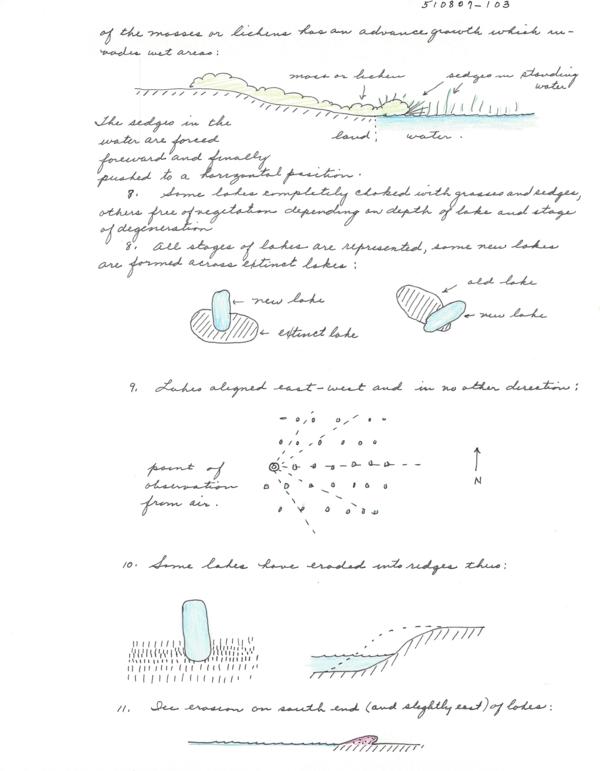 510807-103
of the mosses or lichens has an advance growth which in-
vades wet areas:
moss or lichen
sedges in standing
water
The sedges in the
water are forced
foreward and finally
pushed to a horizontal position.
land
water.
8. Some lakes completely choked with grasses and sedges,
others free of vegetation depending on depth of lake and stage
of degeneration
8. All stages of lakes are represented, some new lakes
are formed across extinct lakes:
new lake
extinct lake
old lake
new lake
9. Lakes aligned east-west and in no other direction:
point of
observation
from air.
N
10. Some lakes have eroded into ridges thus:
11. Ice erosion on south end (and slightly east) of lakes: